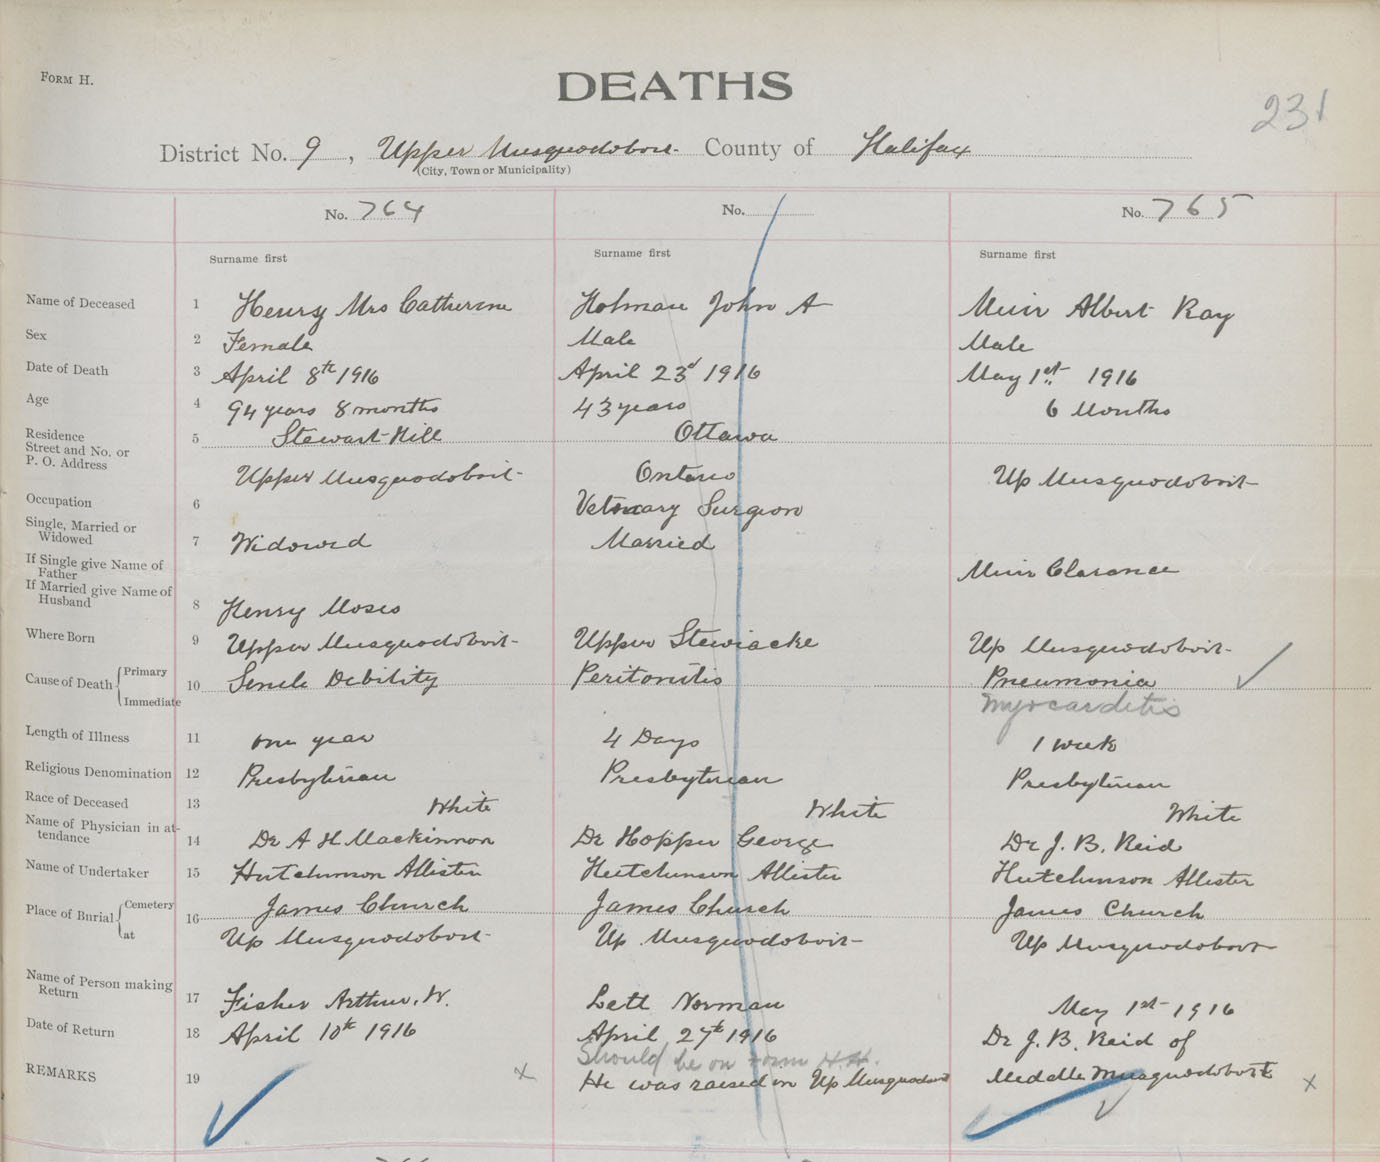 FORM H.
DEATHS
231
District No. 9, Upper Musquodoboit. County of Halifax
(City, Town or Municipality)
No. 764 No. No. 765
Surname first Surname first Surname first
Name of Deceased 1 Henry Mrs Catherine Holman John A Muir Albert Ray
Sex 2 Female Male Male
Date of Death 3 April 8th 1916 April 23d 1916 May 1st 1916
Age 4 94 years 8 months 43 years 6 Months
Residence Street and No. or P. O. Address 5 Stewart Hill Ottawa
Upper Musquodoboit Ontario Up Musquodoboit
Occupation 6 Vetnary Surgeon
Single, Married or Widowed 7 Widowed Married
If Single give Name of Father Muir Clarance
If Married give Name of Husband 8 Henry Moses
Where Born 9 Upper Musquodoboit Upper Stewiacke Up Musquodoboit
Cause of Death { Primary 10 Senile Debility Peritonitis Pneumonia
Immediate myocarditis
Length of Illness 11 one year 4 Days 1 week
Religious Denomination 12 Presbyterian Presbyterian Presbyterian
Race of Deceased 13 White White White
Name of Physician in attendance 14 Dr A H Mackinnon Dr Hopper George Dr J. B. Reid
Name of Undertaker 15 Hutchinson Allister Hutchinson Allister Hutchinson Allister
Place of Burial { Cemetery 16 James Church James Church James Church
at Up Musquodoboit Up Musquodoboit Up Musquodoboit
Name of Person making Return 17 Fisher Arthur, W. Lett Norman May 1st 1916
Date of Return 18 April 10th 1916 April 27th 1916 Dr J. B. Reid of
Should be on Form H.H.
REMARKS 19 x He was raised in Up Musquodoboit Meddle Musquodoboit x